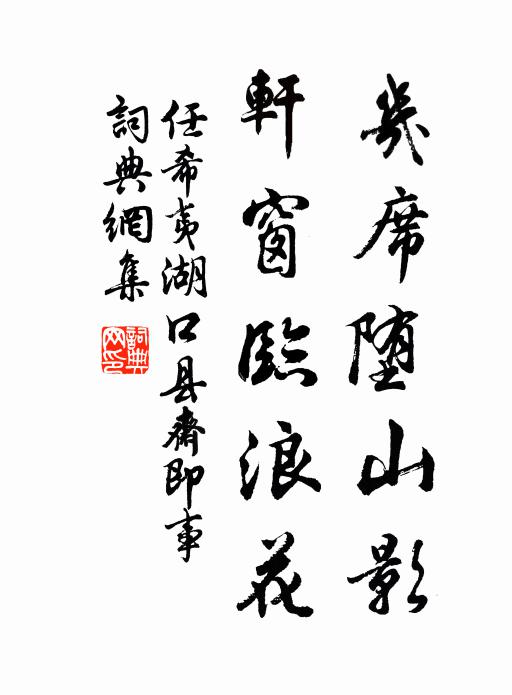 幾席堕山影
軒窗臨浪花
任希夷湖口县齋即事
詞典網集
詞典网印